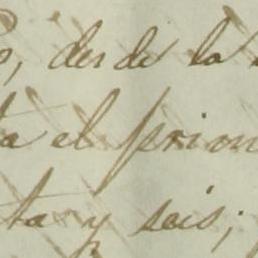 desde la
ta el prion
ta y seis;